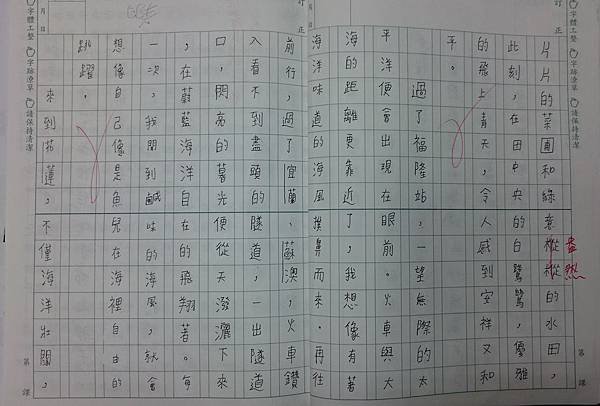 字體工整 字跡潦草 請保持清潔
訂正
月 日
第 課
片片的菜圃和綠意樅樅的水田，
盎然
此刻，在田中央的白鷺鷥，優雅
的飛上青天，令人感到安祥又和
平。
過了福隆站，一望無際的太
平洋便會出現在眼前。火車與大
海的距離更靠近了，我想像有著
海洋味道的海風撲鼻而來。再往
前行，過了宜蘭、蘇澳，火車鑽
入看不盡頭的隧道，一出隧道
口，閃亮的暮光便從天潑灑下來
，在蔚藍海洋自在的飛翔著。每
一次，我聞到鹹味的海風，就會
想像自己像是魚兒在海裡自由的
跳躍。
來到花蓮，不僅海洋壯闊，
訂正
月 日
第 課
字體工整 字跡潦草 請保持清潔